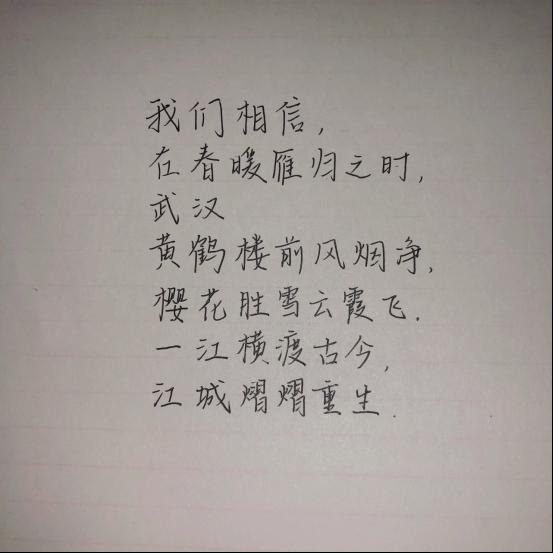 我们相信，
在春暖雁归之时，
武汉
黄鹤楼前风烟净，
樱花胜雪云霞飞.
一江横渡古今，
江城熠熠重生.